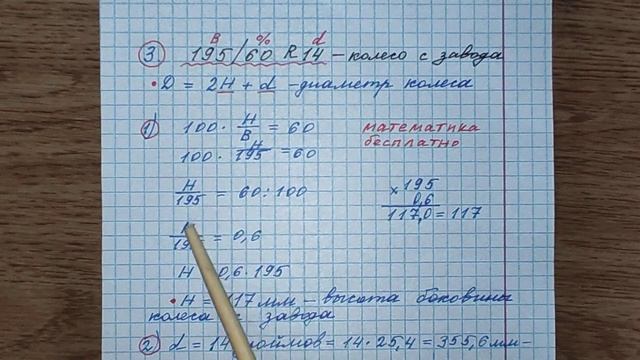 B % d
③ 195/60 R14 – колесо с завода
• D = 2H + d – диаметр колеса
1) 100 · H/B = 60
математика
бесплатно
100 · H/195 = 60
H/195 = 60 : 100
× 195
0,6
117,0 = 117
= 0,6
H 0,6 · 195
• H = 117 мм – высота боковины
колеса с завода
2) d = 14 дюймов = 14 · 25,4 = 355,6 мм –